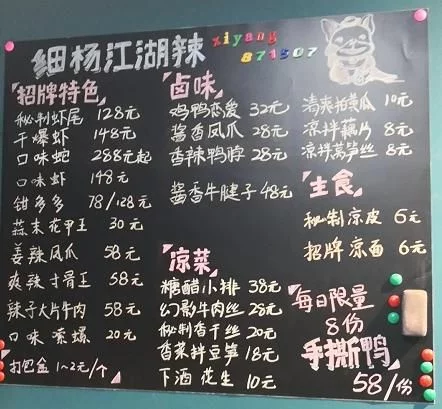 细杨江湖辣
xiyang
871507
招牌特色
秘制虾尾 128元
干爆虾 148元
口味蛇 288元起
口味虾 148元
钳多多 78/128元
蒜末花甲王 30元
姜辣凤爪 58元
爽辣寸骨王 58元
辣子大片牛肉 58元
口味嗦螺 20元
打包盒 1~2元/个
卤味
鸡鸭恋爱 32元
酱香凤爪 28元
香辣鸭脖 28元
酱香牛腱子 48元
凉菜
糖醋小排 38元
幻影牛肉丝 28元
秘制香干丝 20元
香菜拌豆笋 18元
下酒花生 10元
清爽拍黄瓜 10元
凉拌藕片 8元
凉拌莴笋丝 8元
主食
秘制凉皮 6元
招牌凉面 6元
每日限量
8份
手撕鸭
58/份